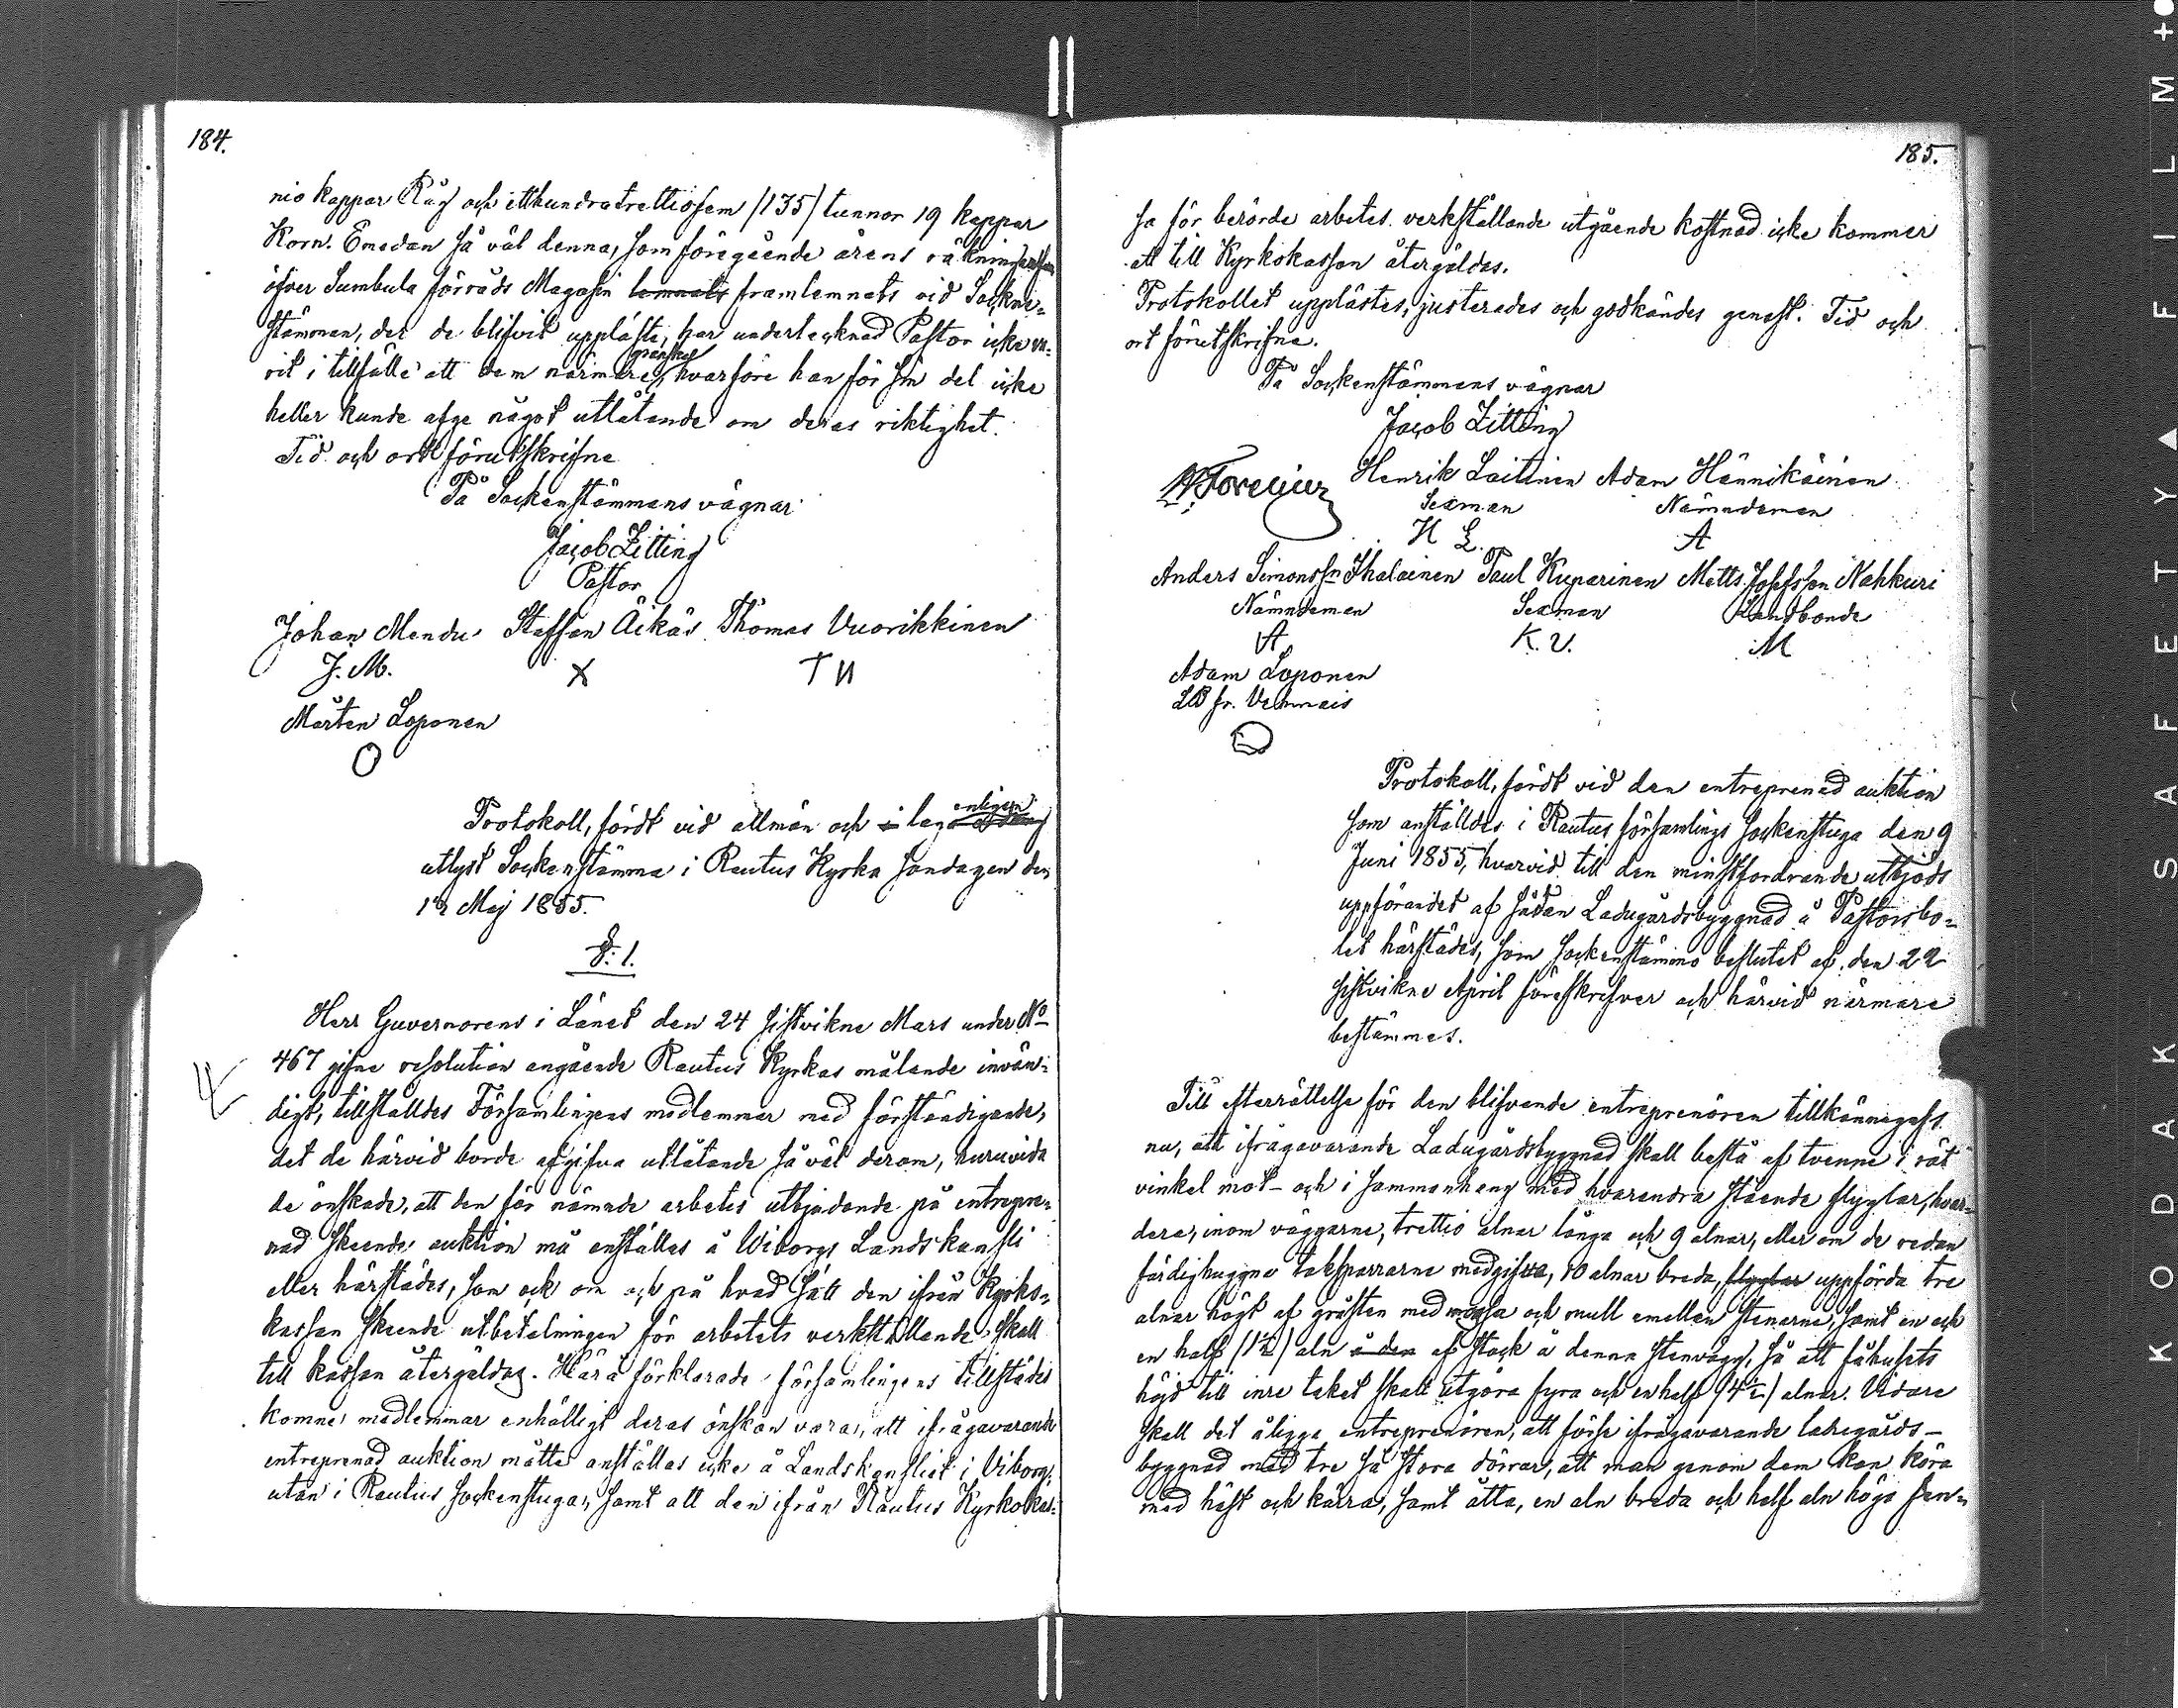 184.
nio kappar Råg och etthundratrettiofem /135/ tunnor 19 kappar
Korn. Emedan så väl denna, som föregående årens räkningar
öfver Sumbula förråds Magasin lemnats framlemnats vid Sockne-
stämman, der de blifvit uppläste, har undertecknad Pastor icke va-
rit i tillfälle att dem närmare granska, hvarföre han för sin del icke
heller kunde afge något utlåtande om deras riktighet.
Tid och ort förutskrifne
På Sockenstämmans vägnar
Jacob Zitting
Pastor
Johan Mendu Staffan Äikäs Thomas Vuorikkinen
J. M. X T U
Mårten Loponen
O
Protokoll, fördt vid allmän och i laga enligen
utlyst Sockenstämma i Rautus Kyrka Söndagen den
12 Maj 1855.
§: 1.
Herr Guvernorens i Länet den 24 sistvikne Mars under No
467 gifne resolution angående Rautus Kyrkas målande invän-
digt, tillställdes Församlingens medlemmar med förständigande,
det de härvid borde afgifva utlåtande så väl derom, huruvida
de önskade, att den för nämnde arbetes utbjudande på entrepre-
nad skeende auktion må anställas å Wiborgs Landskansli
eller härstädes, som ock om och på hvad sätt den ifrån Kyrko-
kassan skeende utbetalningen för arbetets verkställande skall
till kassan återgäldas. Härå förklarade församlingens tillstädes
komne medlemmar enhälligt deras önskan vara, att ifrågavarande
entreprenad auktion måtte anställas icke å Landskansliet i Viborg,
utan i Rautus sockenstuga, samt att den ifrån Rautus Kyrkokas-
185.
sa för berörde arbetes verkställande utgående kostnad icke kommer
att till Kyrkokassan återgäldas.
Protokollet upplästes, justerades och godkändes genast. Tid och
ort förutskrifne.
På Sockenstämmans vägnar
Jacob Zitting
Henrik Laitinen Adam Hännikäinen
Sexman Nämndeman
H L. A
Anders Simonssn Ihalainen Paul Kuparinen Matts Josefsson Nahkuri
Nämndeman Sexman Landbonde
A K. U. M
Adam Loponen
LB fr. Vehmais
Protokoll, fördt vid den entreprenad auktion
som anställdes i Rautus församlings sockenstuga den 9
Juni 1855, hvarvid till den minstfordrande utbjöds
uppförandet af sådan Ladugårdsbyggnad å Pastorsbo-
let härstädes, som sockenstämmo beslutet af den 22
sistvikne April föreskrifver och härvid närmare
bestämmes.
Till efterrättelse för den blifvande entreprenören tillkännagafs
nu, att ifrågavarande Ladugårdsbyggnad skall bestå af tvenne i rät
vinkel mot- och i sammanhang med hvarandra stående flyglar, hvar-
dera, inom väggarne, trettio alnar långa och 9 alnar, eller om de redan
färdighuggne taksparrarne medgifva, 10 alnar breda, flyglar uppförda tre
alnar högt af gråsten med mossa och mull emellan stenarne, samt en och
en half /1½/ aln å den af stock å denna stenvägg, så att fähusets
höjd till inre taket skall utgöra fyra och en half /4½/ alnar. Vidare
skall det åligga entreprenören, att förse ifrågavarande ladugårds-
byggnad med tre så stora dörrar, att man genom dem kan köra
med häst och kärra, samt åtta, en aln breda och half aln höga fen-
KODAK SAFETY FILM